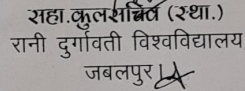 सहा.कुलसचिव (स्था.)
रानी दुर्गावती विश्वविद्यालय
जबलपुर